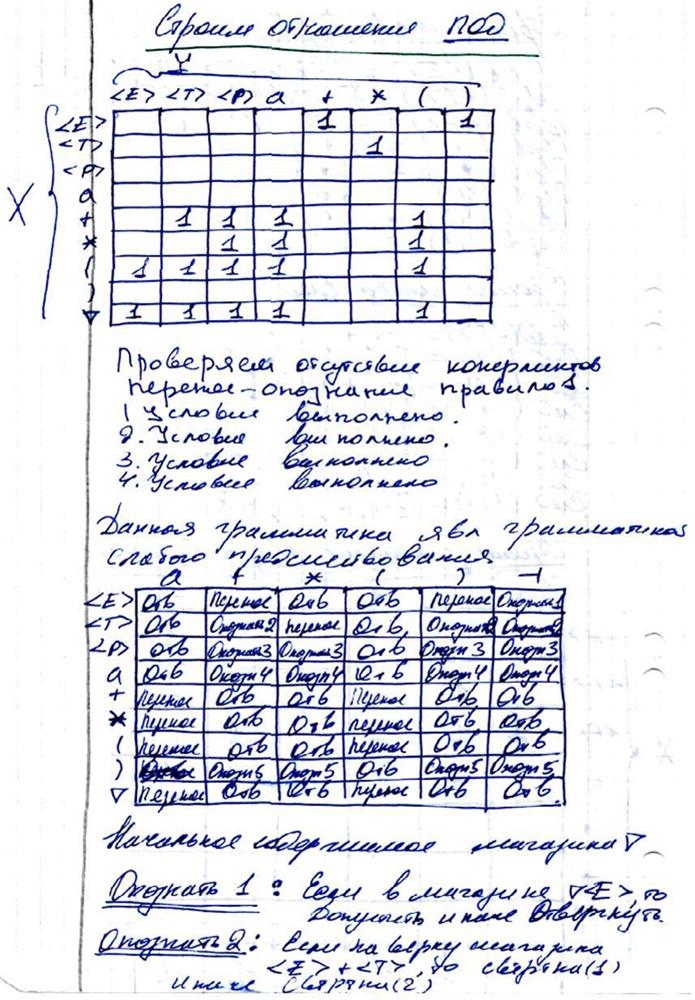 Строим отношение ПОД
Y
<E> <T> <P> a + * ( )
X
<E> 1 1
<T> 1
<P>
a
+ 1 1 1 1
* 1 1 1
( 1 1 1 1 1
)
▽ 1 1 1 1 1
Проверяем отсутствие конфликтов
перенос-опознание правилов.
1 Условие выполнено.
2. Условие выполнено.
3. Условие выполнено
4. Условие выполнено
Данная грамматика явл грамматикой
слабого предшествования
a + * ( ) ⊣
<E> Отв Перенос Отв Отв Перенос Опознать1
<T> Отв Опознать2 Перенос Отв Опознать2 Опознать2
<P> Отв Опознать3 Опознать3 Отв Опозн3 Опозн3
a Отв Опозн4 Опозн4 Отв Опозн4 Опозн4
+ Перенос Отв Отв Перенос Отв Отв
* Перенос Отв Отв перенос Отв Отв
( Перенос Отв Отв перенос Отв Отв
) Опозн5 Опозн5 Отв Опозн5 Опозн5
▽ Перенос Отв Отв перенос Отв Отв
Начальное содержимое магазина ▽
Опознать 1: Если в магазине ▽<E>, то
Допустить иначе Отвергнуть.
Опознать 2: Если на верху магазина
<E>+<T>, то свёртка(1)
иначе Свёртка(2)